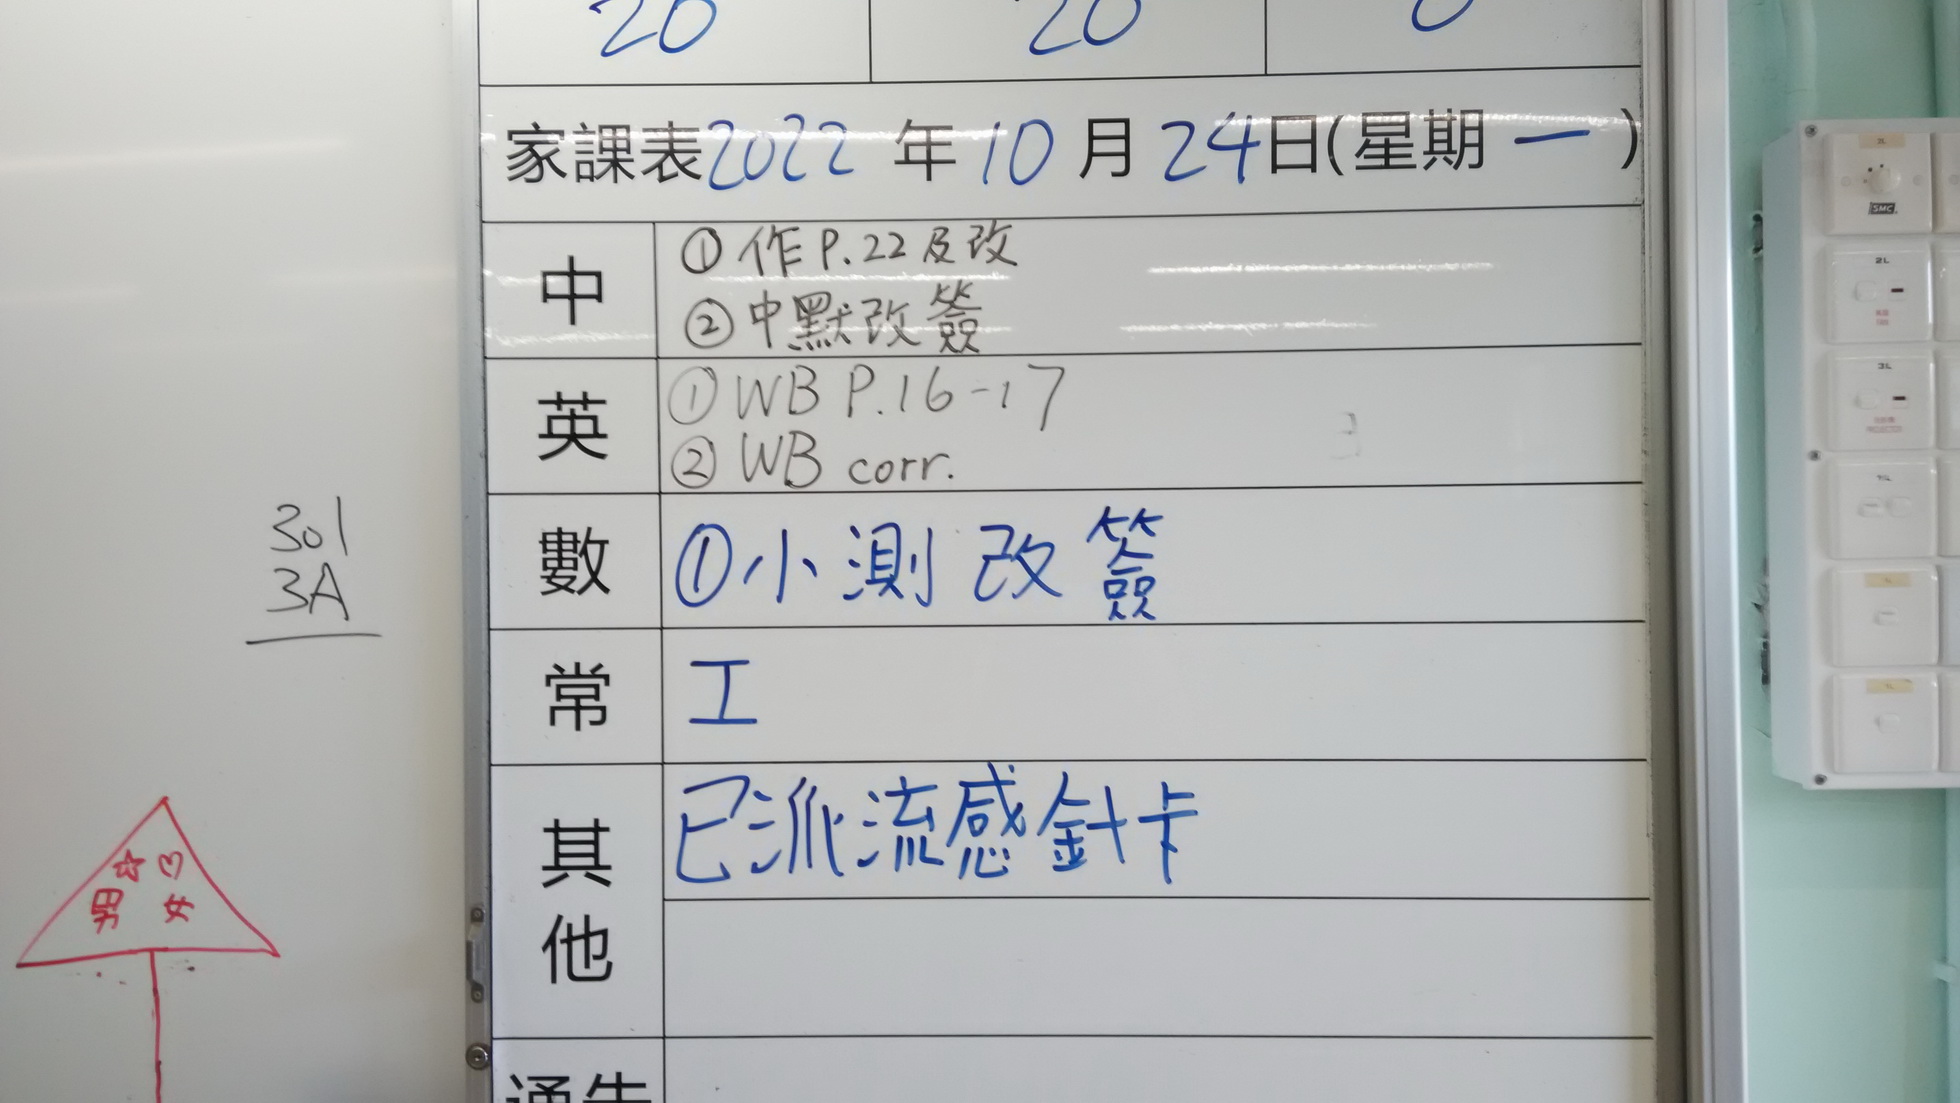 20 20 0
家課表2022年10月24日(星期一)
中
①作P.22及改
②中默改簽
英
①WB P.16-17
②WB corr.
數
①小測改簽
常
工
其他
已派流感針卡
通告
301
3A
男 女
SMC
2L
3L